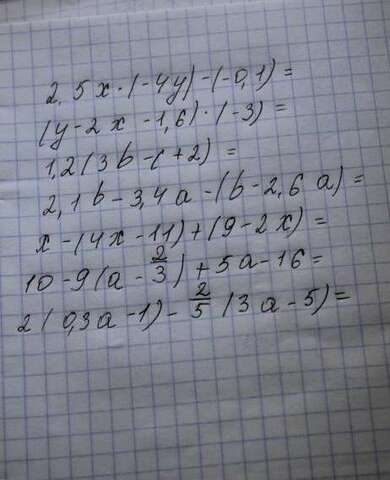 2,5x·(-4y)-(-0,1)=
(y-2x-1,6)·(-3)=
1,2(3b-c+2)=
2,1b-3,4a-(b-2,6a)=
x-(4x-11)+(9-2x)=
10-9(a-2/3)+5a-16=
2(0,3a-1)-2/5(3a-5)=